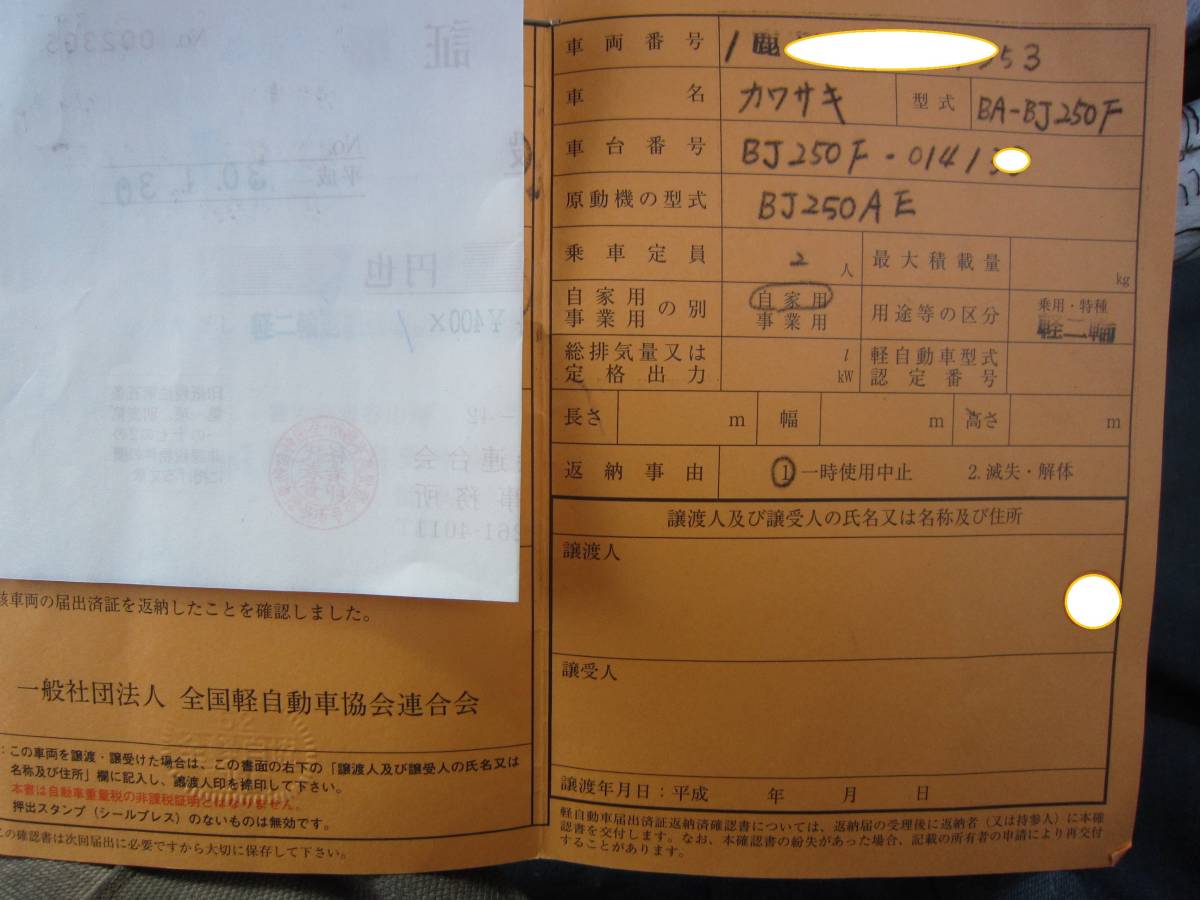 車両番号 1鹿 353
車名 カワサキ 型式 BA-BJ250F
車台番号 BJ250F-01413
原動機の型式 BJ250AE
乗車定員 2人 最大積載量 kg
自家用 の別 自家用 用途等の区分 乗用・特種
事業用 事業用 軽二輪
総排気量又は l 軽自動車型式
定格出力 kW 認定番号
長さ m 幅 m 高さ m
返納事由 1 一時使用中止 2.滅失・解体
譲渡人及び譲受人の氏名又は名称及び住所
譲渡人
譲受人
譲渡年月日:平成 年 月 日
軽自動車届出済証返納済確認書については、返納届の受理後に返納者(又は持参人)に本確
認書を交付します。なお、本確認書の紛失があった場合、記載の所有者の申請により再交付
することがあります。
証
No. 002303
No.
平成 30.1.30
円也
¥400×1
車両の届出済証を返納したことを確認しました。
一般社団法人 全国軽自動車協会連合会
:この車両を譲渡・譲受けた場合は、この書面の右下の「譲渡人及び譲受人の氏名又は
名称及び住所」欄に記入し、譲渡人印を捺印して下さい。
本書は自動車重量税の非課税証明とはなりません。
押出スタンプ(シールプレス)のないものは無効です。
この確認書は次回届出に必要ですから大切に保存して下さい。